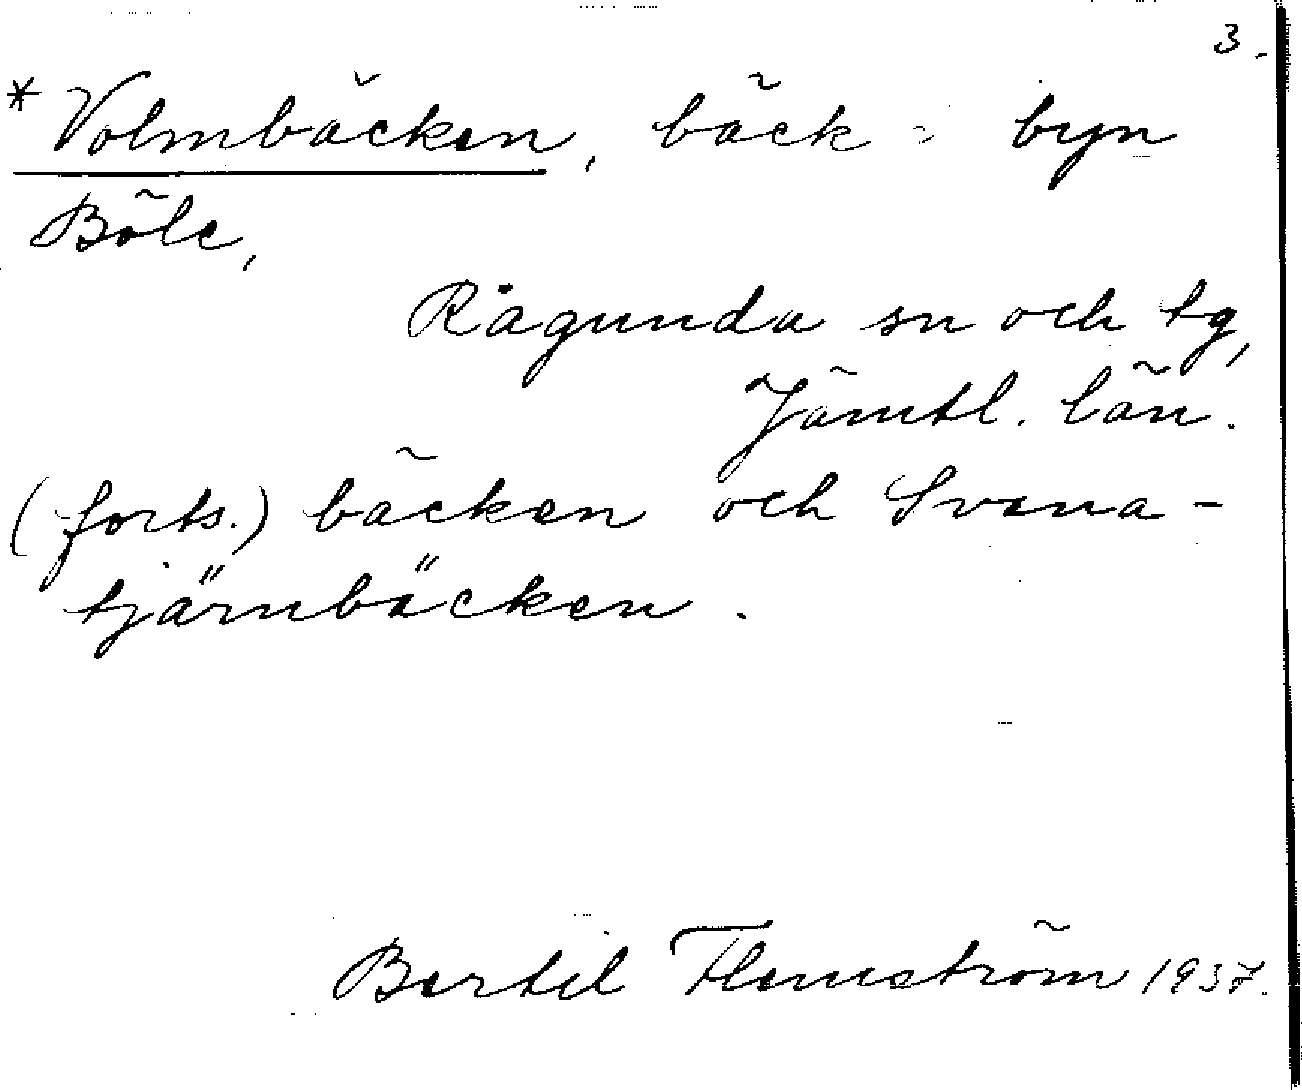 3.
*Volmbäcken, bäck i byn
Böle,
Ragunda sn och tg,
Jämtl. län.
(forts.) bäcken och Svena-
tjärnbäcken.
Bertil Flemström 1937.